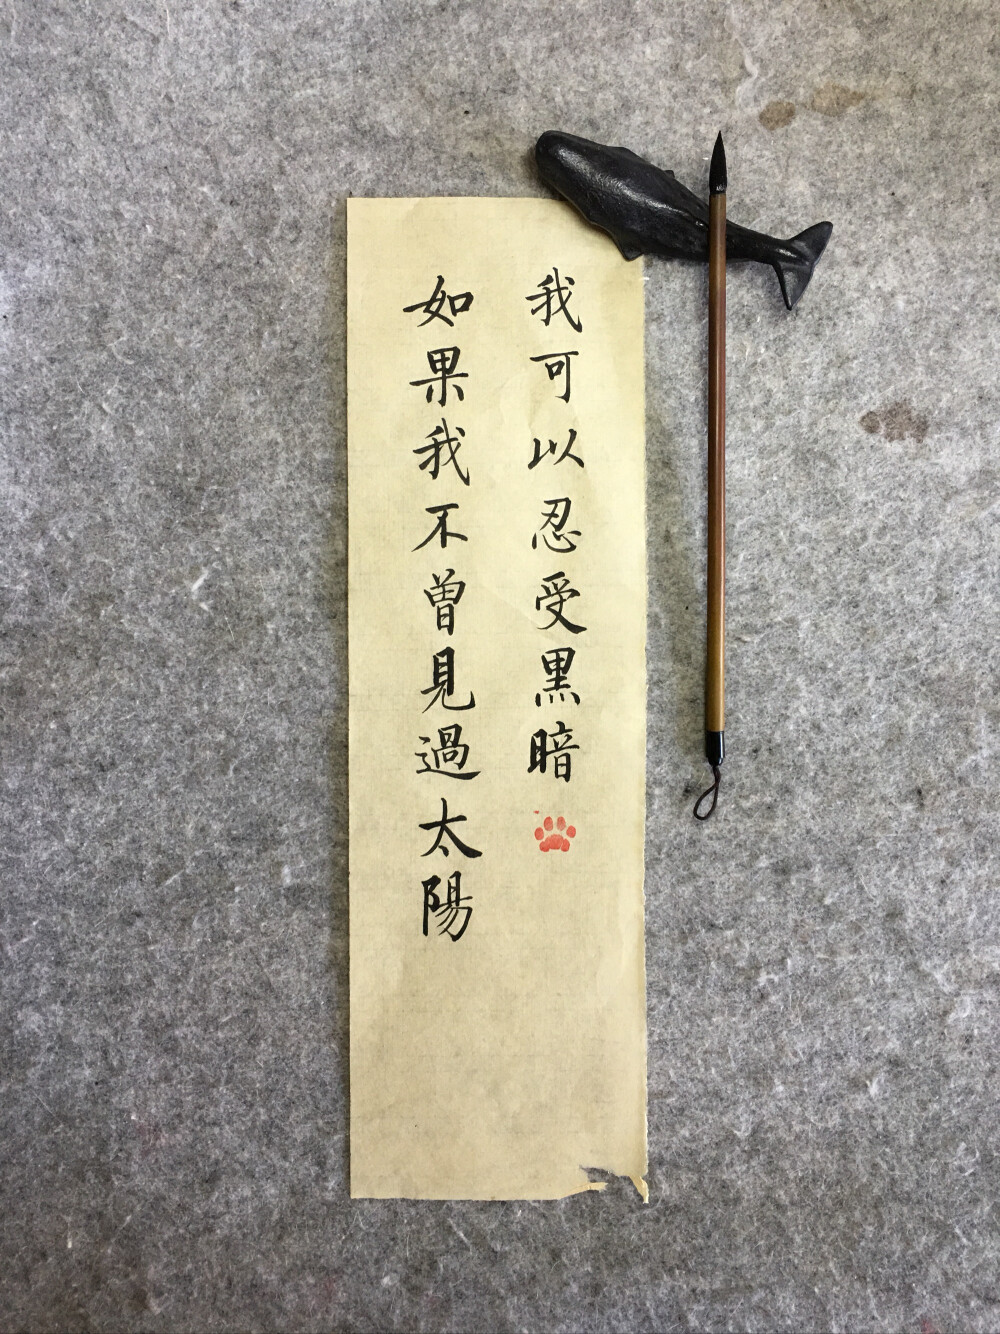 我可以忍受黑暗
如果我不曾見過太陽